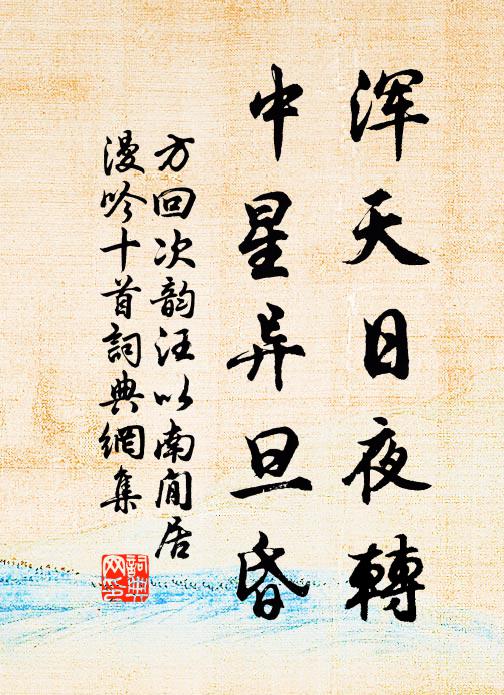 浑天日夜轉
中星异旦昏
方回次韵汪以南闲居
漫吟十首詞典網集